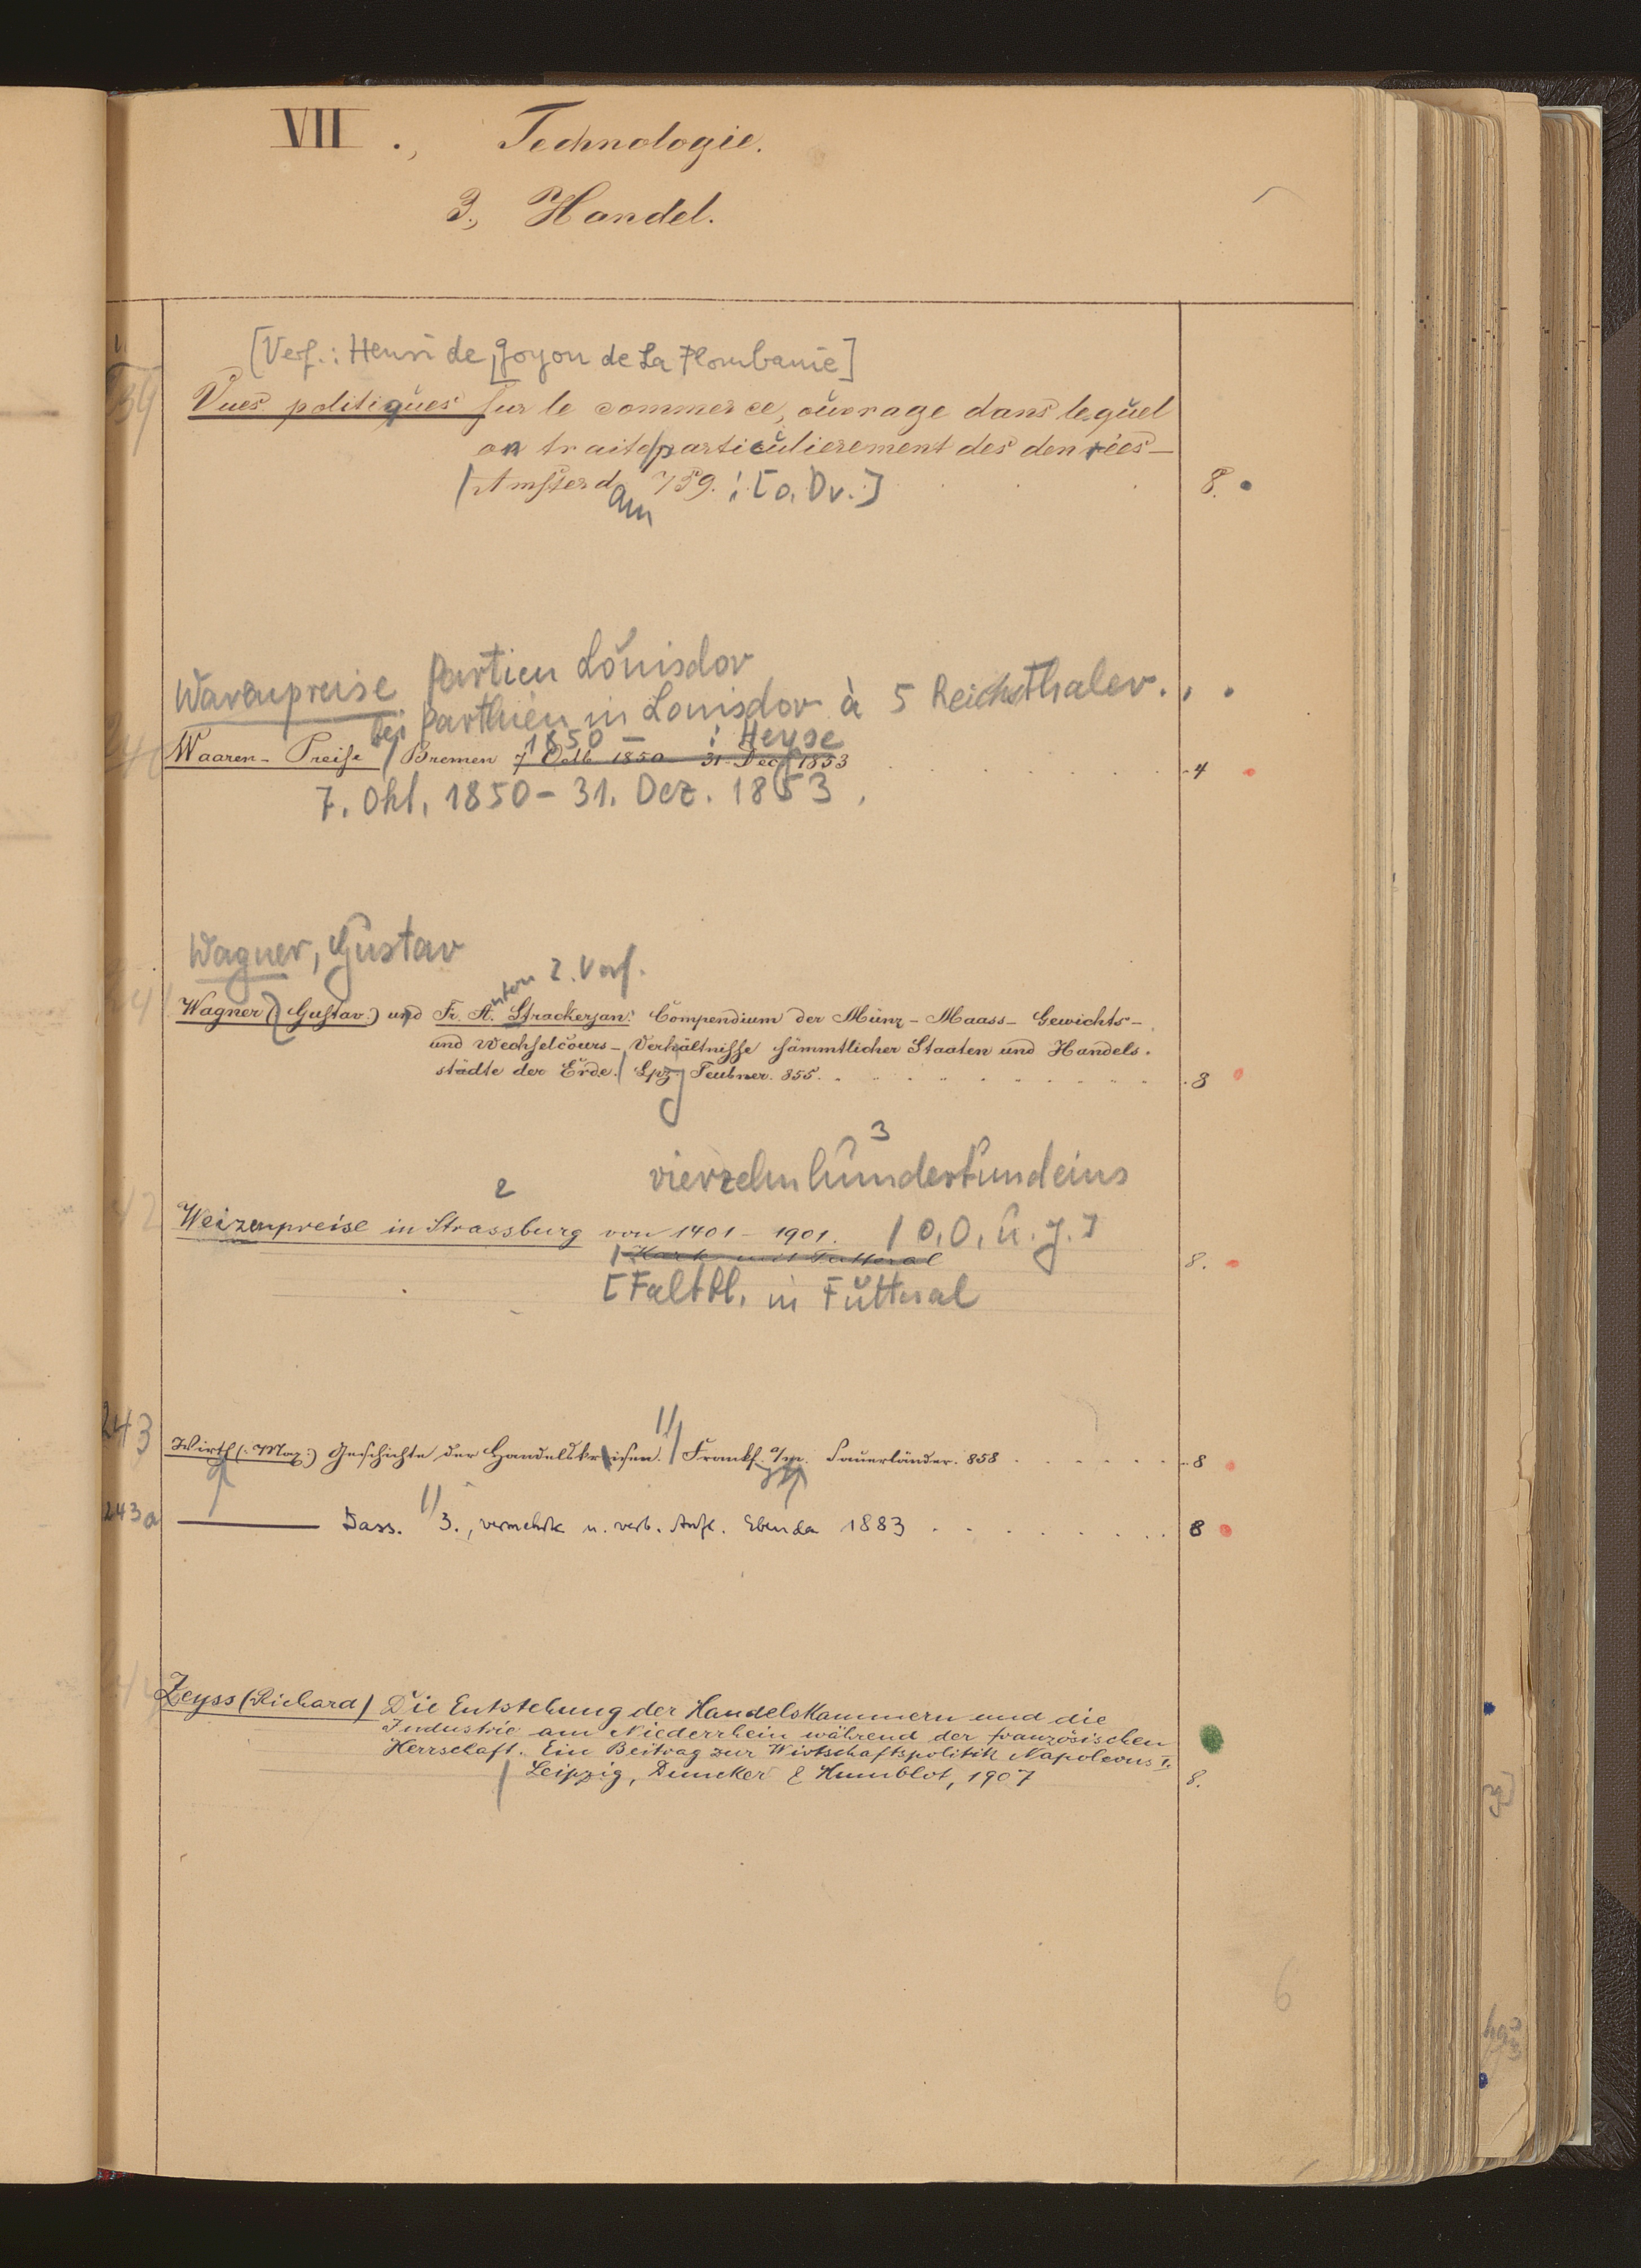 VII., Technologie.
3., Handel.
[Verf.: Henri de Goyon de La Plombanie]
239
Vues politiques sur le commerce, ouvrage dans lequel
on traite particulierement des denrées_
Amsterdam 759. : [o. Dr.] 8.
Partien Louisdor
Warenpreise bei Parthien in Louisdor à 5 Reichsthaler.
1850 – : Heyse
Waaren-Preise Bremen 7 Octb 1850 31 Dec 1853 4
7. Okt. 1850 – 31. Dez. 1853.
Wagner, Gustav
anton 2. Verf.
Wagner (Gustav:) und Fr. A. Strackerjan: Compendium der Münz- Maass- Gewichts-
und Wechselcours-Verhältnisse sämmtlicher Staaten und Handels-
städte der Erde. Lpz. Teubner. 855. 8
3
vierzehnhundertundeins
2
42
Weizenpreise in Strassburg von 1401 – 1901. [o. O. u. J.]
Kart. mit Futteral 8.
[Faltbl. in Futteral
243
Wirth (: Max:) Geschichte der Handelskrisen. Frankf. a/m. Sauerländer. 858 8
243a
Dass. 3., vermehrte u. verb. Aufl. Ebenda 1883 8
Zeyss (Richard) Die Entstehung der Handelskammern und die
Industrie am Niederrhein während der französischen
Herrschaft. Ein Beitrag zur Wirtschaftspolitik Napoleons I.
Leipzig, Duncker & Humblot, 1907 8.
6